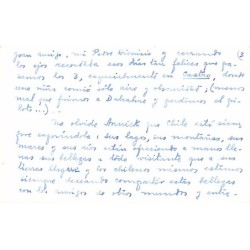 gran amigo, mi Pedro Dionisio y cerrando (3
los ojos recordba esos días tan felices que pa
samos los 3, especialmente en Castro, donde
una niña comió sólo aire y obscuridad, (menos
mal que fuimos a Dalcahue y perdimos el pi-
loto...)
No olvide Annick que Chile está siem
pre esperándola; sus lagos, sus montañas, sus
mares y sus ríos están ofreciendo a manos lle
nas sus bellezas a todo visitante que a sus
tierras llegue y los chilenos mismos estamos
siempre deseando compartir estas bellezas
con los amigos de otros mundos y entre-